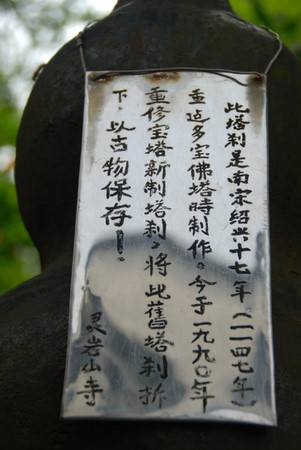 此塔刹是南宋绍兴十七年（一一四七年）
重造多宝佛塔時制作。今于一九九〇年
重修宝塔新制塔刹，将此舊塔刹拆
下，以古物保存！
灵岩山寺